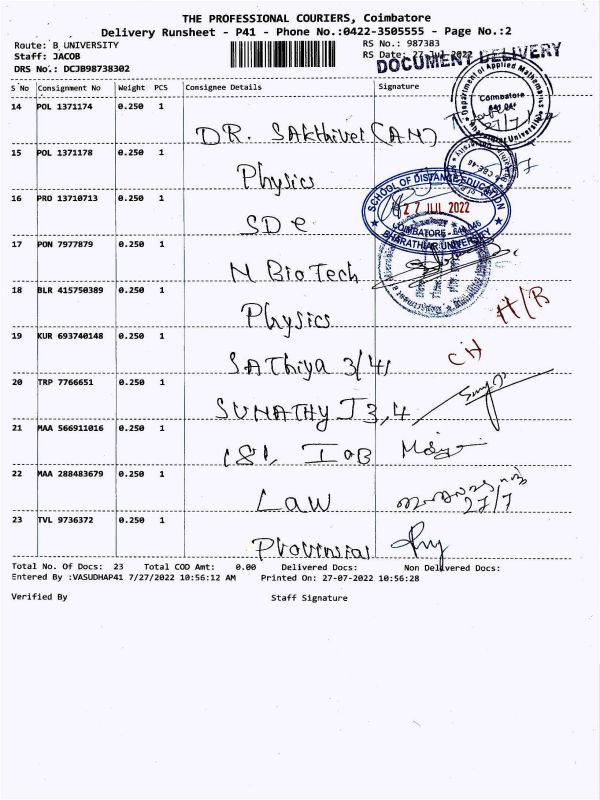 THE PROFESSIONAL COURIERS, Coimbatore
Delivery Runsheet - P41 - Phone No.:0422-3505555 - Page No.:2
Route: B_UNIVERSITY
RS No.: 987383
Staff: JACOB
RS Date: 27 Jul 2022
DRS No.: DCJB98738302
DOCUMENT DELIVERY
S No Consignment No Weight PCS Consignee Details Signature
Department of Applied Mathematics
Coimbatore
641 046
Bharathiar University
27/7
14 POL 1371174 0.250 1
DR. SAKthivel (AM)
15 POL 1371178 0.250 1
Physics
16 PRO 13710713 0.250 1
SDe
SCHOOL OF DISTANCE EDUCATION
27 JUL 2022
COIMBATORE - 641 046
BHARATHIAR UNIVERSITY
17 PON 7977879 0.250 1
M BioTech
18 BLR 415750389 0.250 1
Physics
H/B
19 KUR 693740148 0.250 1
SAThiya 3/41
CH
20 TRP 7766651 0.250 1
SUNATHY J 3,4
21 MAA 566911016 0.250 1
ISI, IOB
22 MAA 288483679 0.250 1
LAW
27/7
23 TVL 9736372 0.250 1
Provinsial
Total No. Of Docs: 23 Total COD Amt: 0.00 Delivered Docs: Non Delivered Docs:
Entered By :VASUDHAP41 7/27/2022 10:56:12 AM Printed On: 27-07-2022 10:56:28
Verified By Staff Signature